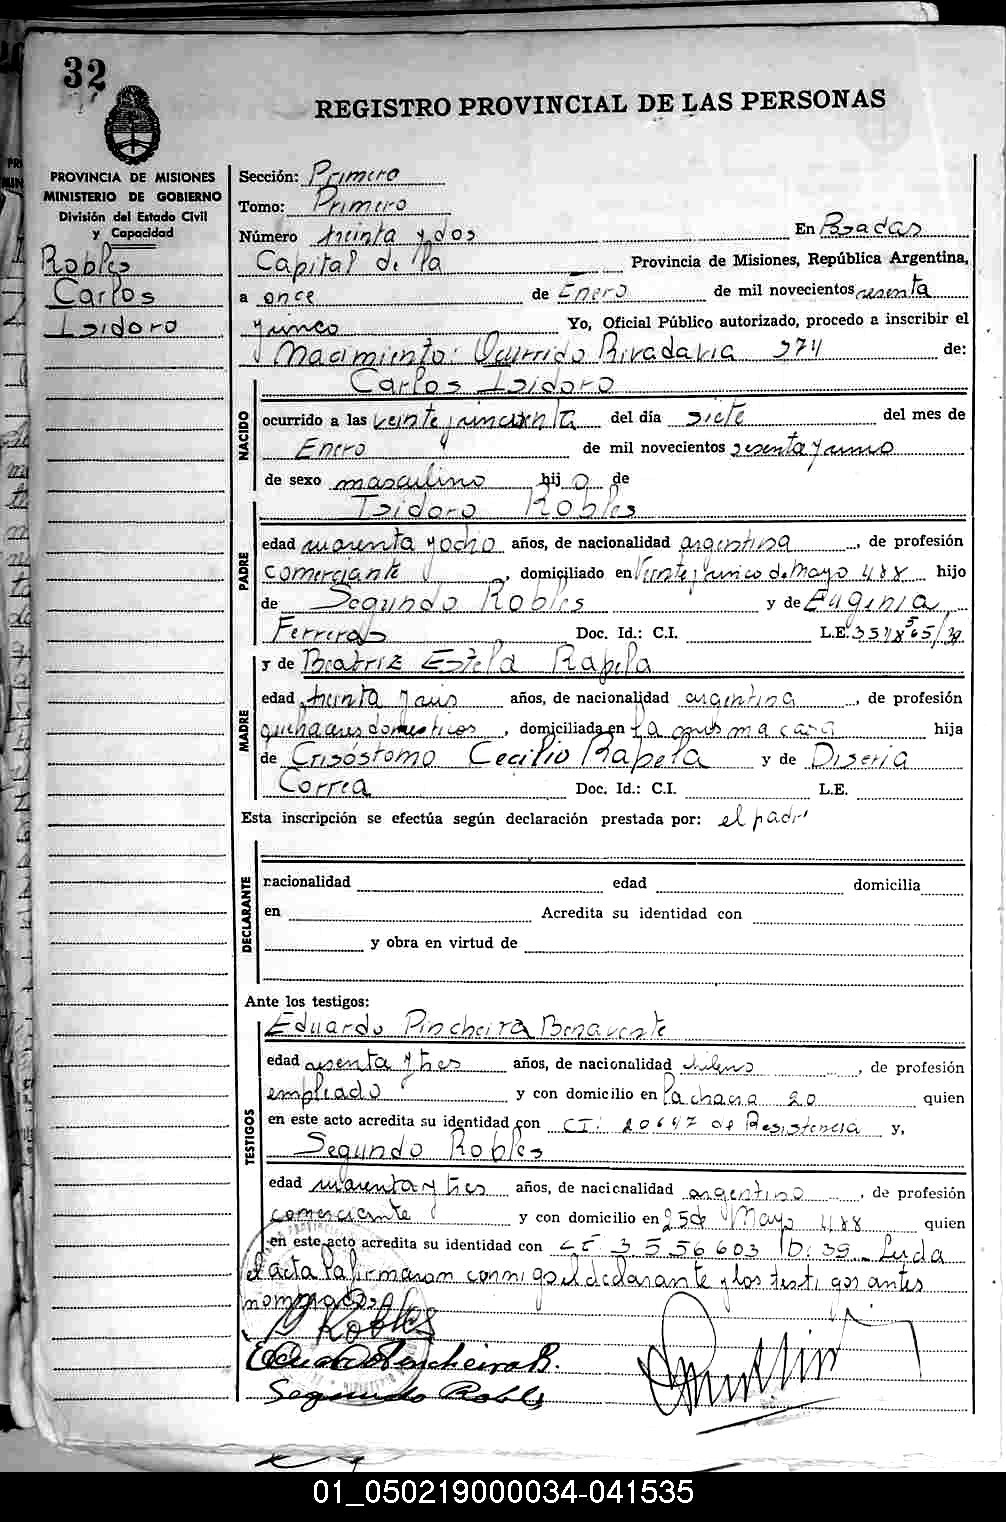 32
REGISTRO PROVINCIAL DE LAS PERSONAS
PROVINCIA DE MISIONES
MINISTERIO DE GOBIERNO
División del Estado Civil
y Capacidad
Robles
Carlos
Isidoro
Sección: Primero
Tomo: Primero
Número treinta y dos En Posadas
Capital de la Provincia de Misiones, República Argentina,
a once de Enero de mil novecientos sesenta
y uno Yo, Oficial Público autorizado, procedo a inscribir el
Nacimiento: Ocurrido Rivadavia 974 de:
Carlos Isidoro
NACIDO
ocurrido a las veinte y cincuenta del día siete del mes de
Enero de mil novecientos sesenta y uno
de sexo masculino hijo de
Isidoro Robles
PADRE
edad cuarenta y ocho años, de nacionalidad argentina, de profesión
comerciante, domiciliado en Veinte y cinco de Mayo 488 hijo
de Segundo Robles y de Eugenia
Ferreras Doc. Id.: C.I. L.E.
y de Beatriz Estela Rapela
MADRE
edad treinta y seis años, de nacionalidad argentina, de profesión
quehaceres domesticos, domiciliada en la misma casa hija
de Crisóstomo Cecilio Rapela y de Diseria
Correa Doc. Id.: C.I. L.E.
Esta inscripción se efectúa según declaración prestada por: el padre
DECLARANTE
nacionalidad edad domicilia
en Acredita su identidad con
y obra en virtud de
Ante los testigos:
Eduardo Pincheira Benavente
TESTIGOS
edad sesenta y tres años, de nacionalidad chileno, de profesión
empleado y con domicilio en La chacra 20 quien
en este acto acredita su identidad con CI: 20647 de Resistencia y,
Segundo Robles
edad cuarenta y tres años, de nacionalidad argentino, de profesión
comerciante y con domicilio en 25 de Mayo 488 quien
en este acto acredita su identidad con LE 3556603 D: 39- Leida
el acta la firmaron conmigo el declarante y los testigos antes
nombrados
Robles
Eduardo Pincheira B.
Segundo Robles
01_050219000034-041535